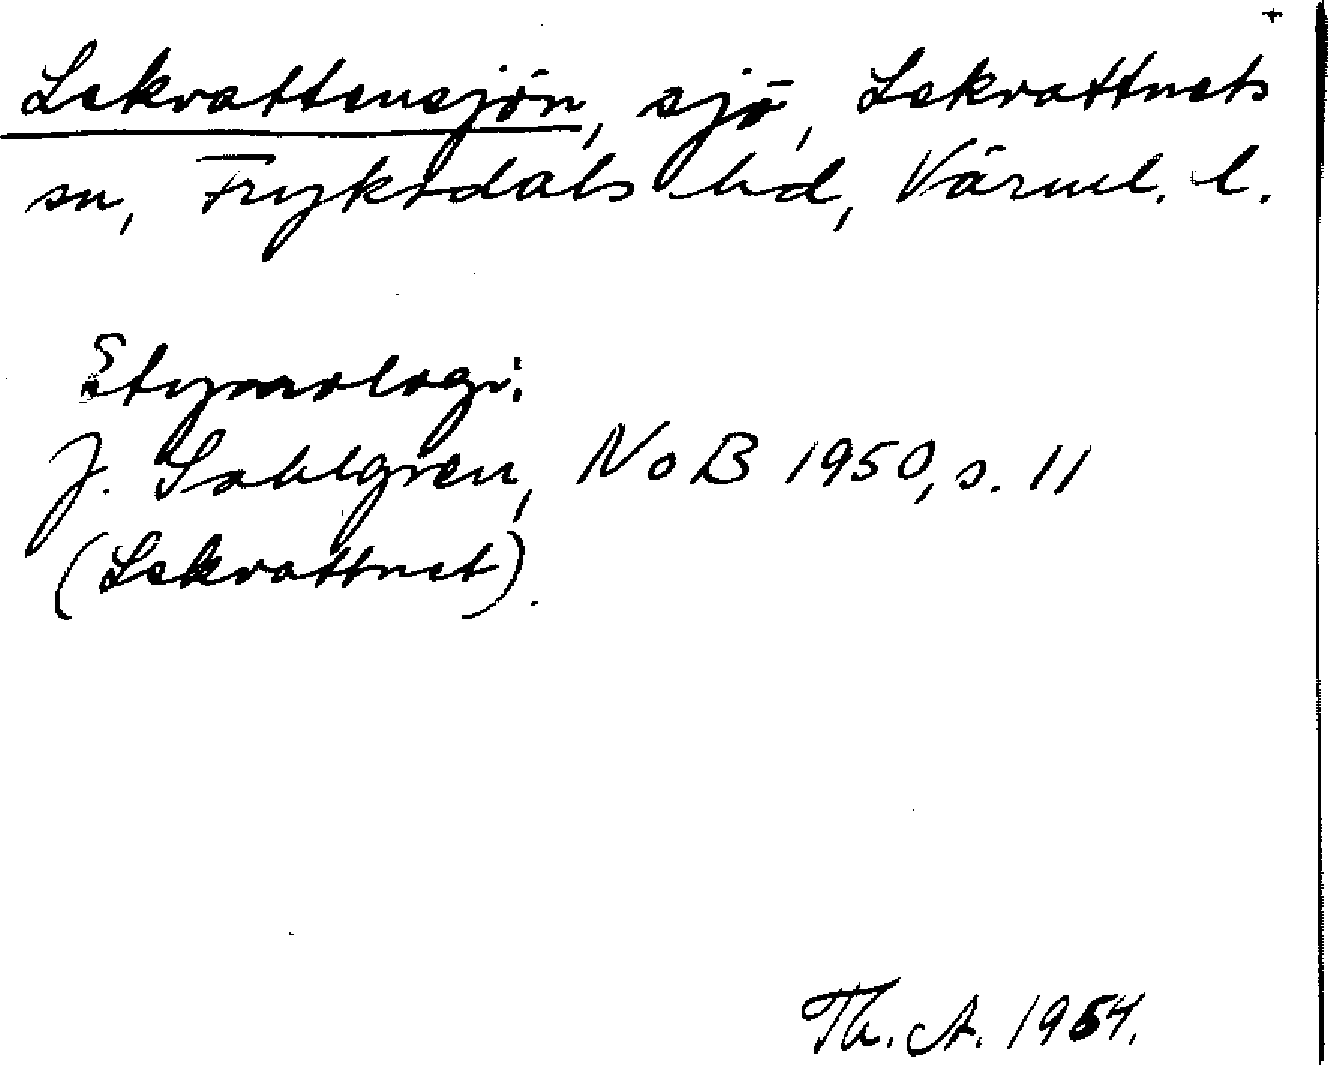 Lekvattensjön, sjö, Lekvattnets
sn, Fryksdals hd, Värml. l.
Etymologi:
J. Sahlgren, NoB 1950, s. 11
(Lekvattnet).
Th. A. 1954.